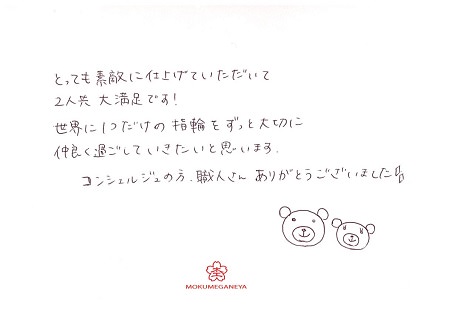 とっても素敵に仕上げていただいて
2人共 大満足です!
世界に1つだけの 指輪を ずっと大切に
仲良く過ごしていきたいと思います.
コンシェルジュの方、職人さん ありがとうございました!!
MOKUMEGANEYA